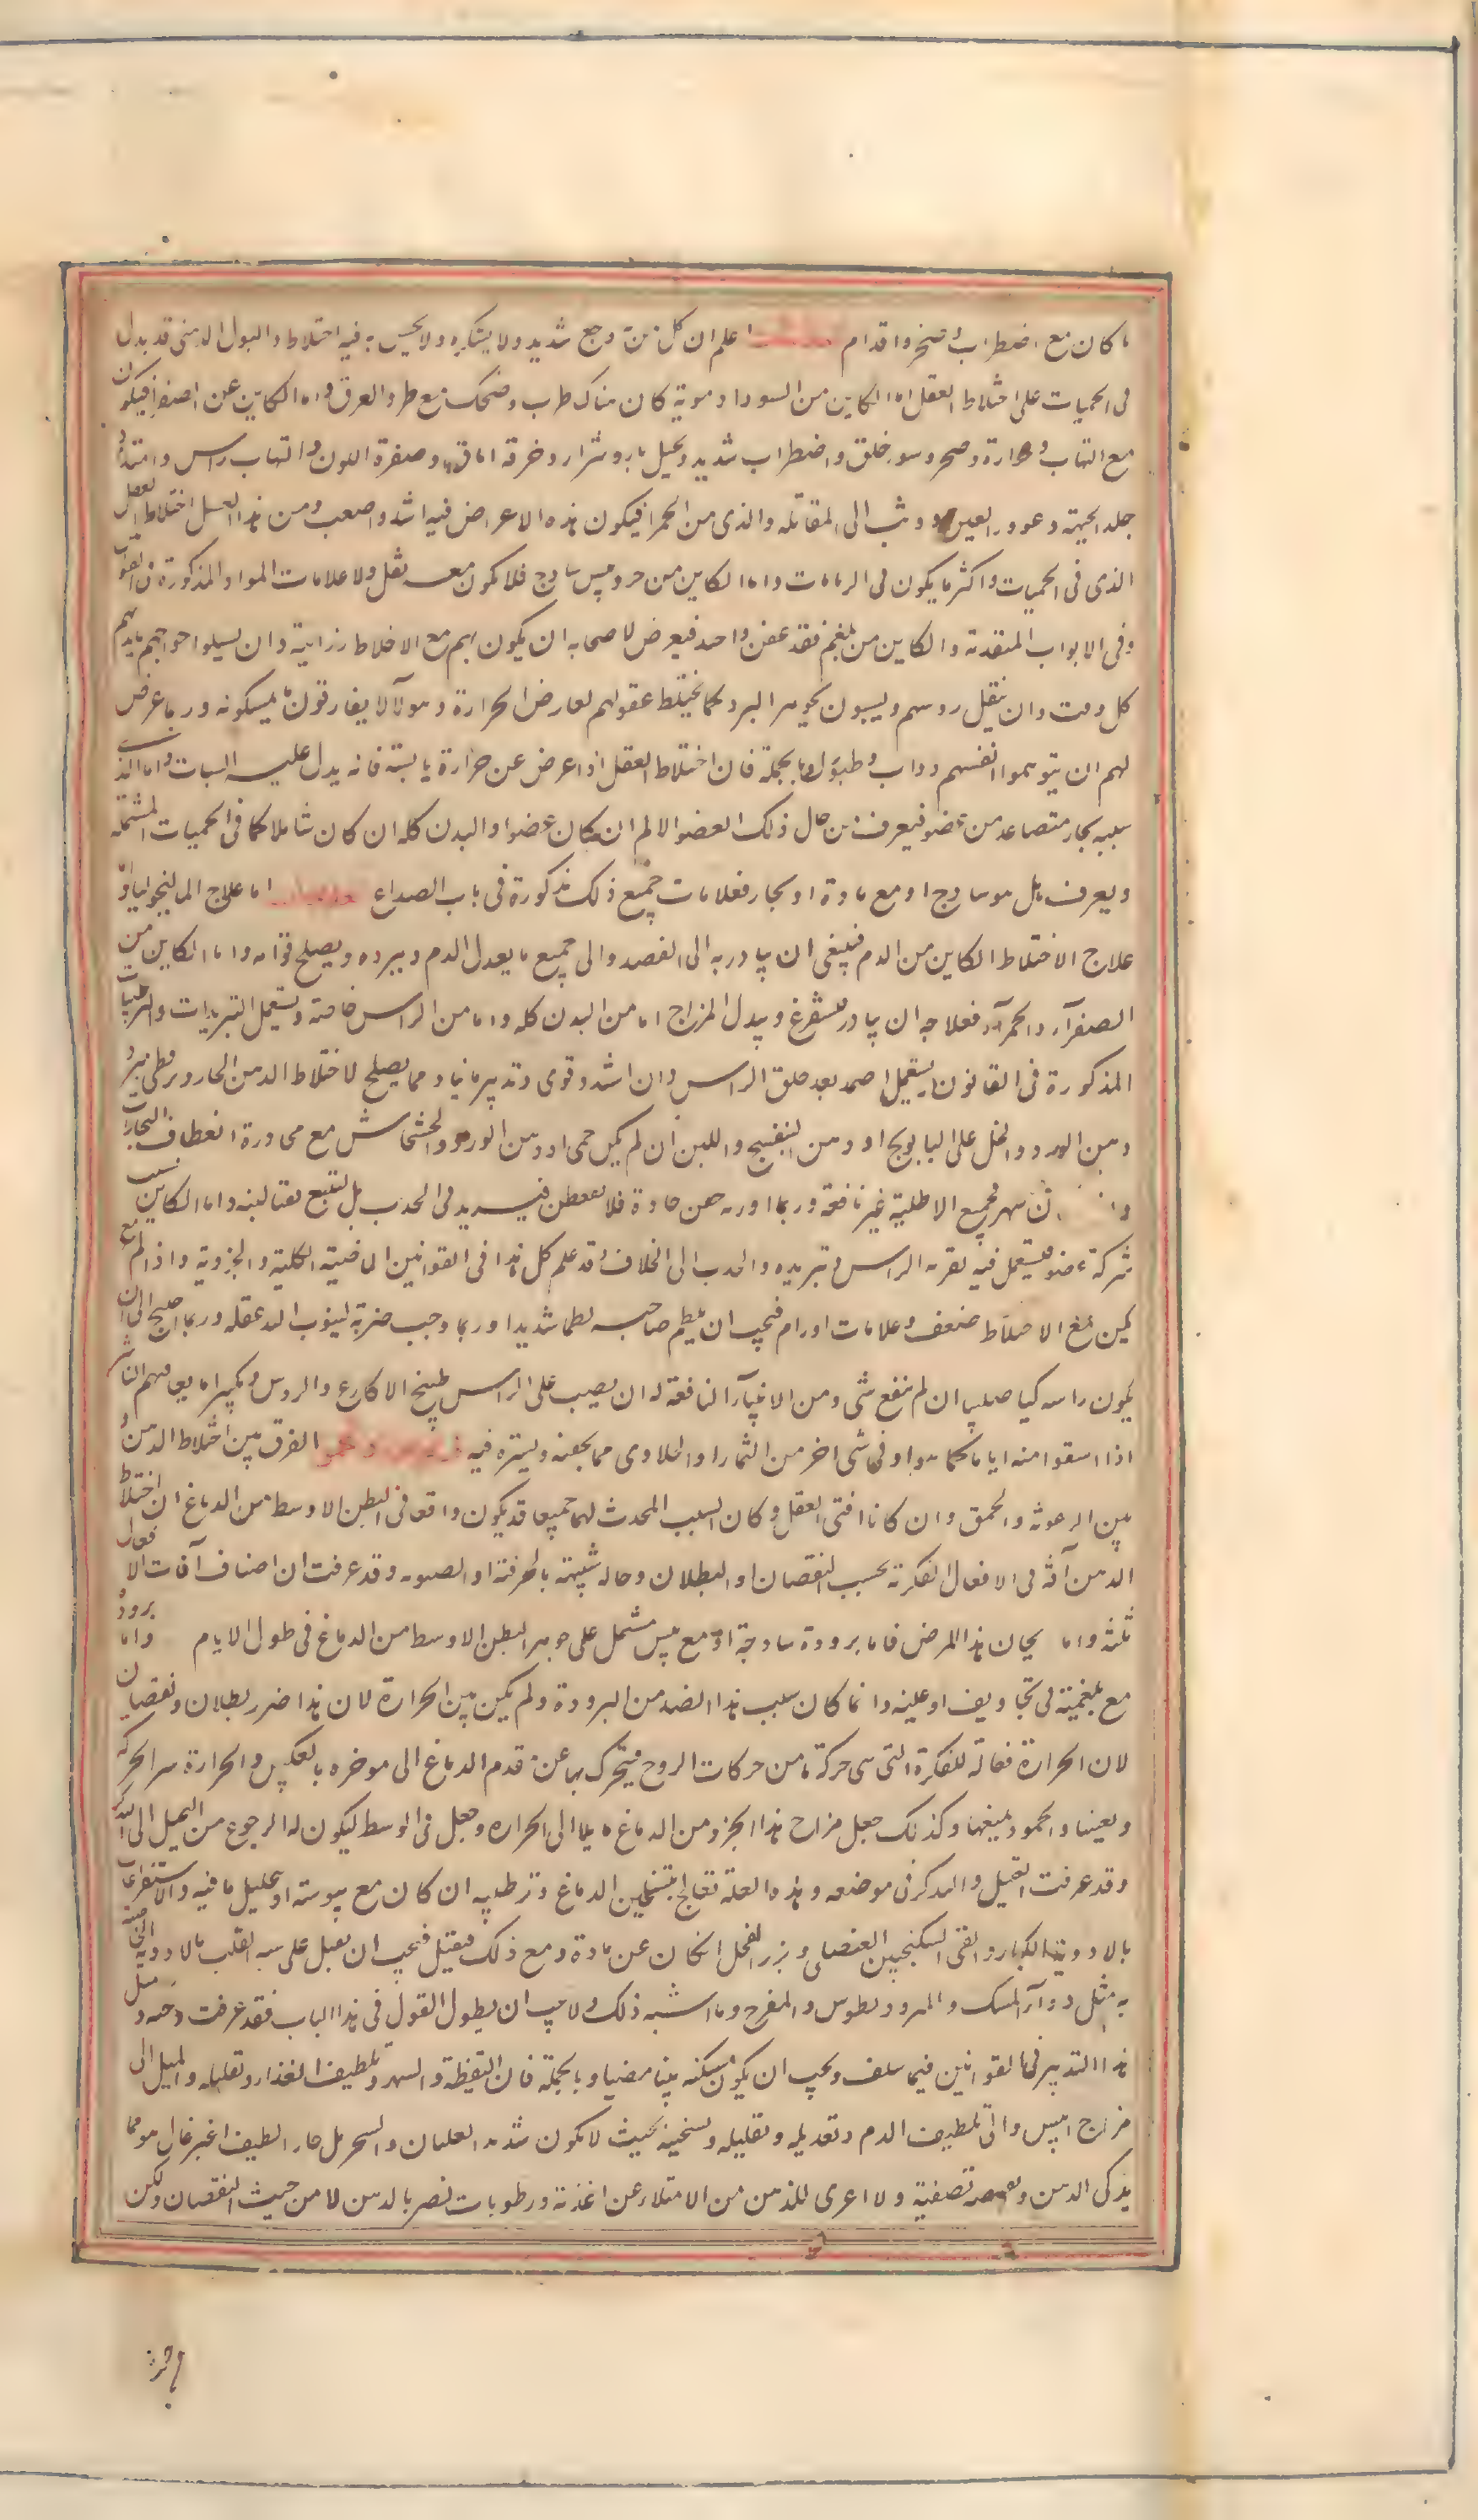 ما كان مع اضطراب و ضجر واقدام اعلم ان كل من وجع شديد ولا يشكيه ولا يحس به فيه اختلاط والبول الدهنى قد يدل
فى الحميات على اختلاط العقل اما الكاين من السودا دموية كان هناك طرب وضحك مع طرد العرق واما الكاين عن اصفر فيكون
مع التهاب و حرارة وضجر وسوء خلق واضطراب شديد وتخيل نار وشرار وحرقة اماق وصفرة اللون والتهاب راس وامتداد
جلد الجبهة وغوور العين ووثب الى المقاتلة والذى من الحمرا فيكون هذه الاعراض فيه اشد واصعب ومن هذا القبيل اختلاط العقل
الذى فى الحميات واكثر ما يكون فى واما الكاين من حر ويبس ساذج فلا يكون معه ثقل ولا علامات المواد المذكورة فى القوانين
وفى الابواب المتقدمة والكاين من بلغم فقد عفن واحتد فيعرض لاصحابه ان يكون بهم مع الاختلاط رزانة وان يسيلوا حواجبهم بايديهم
كل وقت وان يثقل روسهم ويسبتون بجوهر البرد كما يختلط عقولهم لعارض الحرارة وهولآ لا يفارقون ما يمسكونه وربما عرض
لهم ان يتوهموا انفسهم دواب وطيور وبالجملة فان اختلاط العقل اذا عرض عن حرارة يابسة فانه يدل عليه السبات واما الذى
سببه بخار متصاعد من عضو فيعرف من حال ذلك العضو الالم ان كان عضوا والبدن كله ان كان شاملا كما فى الحميات المشتملة
ويعرف هل هو ساذج او مع مادة او بخار فعلامات جميع ذلك مذكورة فى باب الصداع اما علاج الماليخوليا او
علاج الاختلاط الكاين من الدم فينبغى ان يبادر به الى الفصد والى جميع ما يعدل الدم ويبرده ويصلح قوامه واما الكاين من
الصفرآء والحمرآء فعلاجه ان يبادر فيستفرغ ويبدل المزاج اما من البدن كله واما من الراس خاصة ويستعمل التبريدات والترطيبات
المذكورة فى القانون يستعمل بعد حلق الراس وان اشتد وقوى وتدبير مانيا ومما يصلح لاختلاط الذهن الحار
ودهن الورد والخل على البابونج او دهن البنفسج واللبن ان لم يكن حمى او دهن الورد والخشخاش مع محاورة انعطاف البخارات
سهر فجميع الاطلية غير نافعة وربما اورد حقن حادة فلا يعطن فيزيد فى الجذب بل يتبع واما الكاين بسبب
شركة عضو فيستعمل فيه تقوية الراس وتبريده والجذب الى الخلاف وقد علم كل هذا فى القوانين الماضية الكلية والجزوية واذا لم
يكن مع الاختلاط ضعف وعلامات اورام فيجب ان يلطم صاحبه لطما شديدا وربما وجب ضربة ليثوب اليه عقله وربما احتيج الى ان
يكوى راسه كيا صليبيا ان لم ينفع شى ومن الاشيآء النافعة له ان يصب على الراس طبيخ الاكارع والروس
اذا سقوا منه اياما كما هو او فى شى اخر من الثمار او الحلاوى مما يخفيه ويستره فيه الفرق بين اختلاط الذهن و
بين الرعونة والحمق وان كانا آفتى العقل وكان السبب المحدث لهما جميعا قد يكون واقعا فى البطن الاوسط من الدماغ ان اختلاط
الذهن آفة فى الافعال الفكرية بحسب النقصان او البطلان وحاله شبيهة بالخرفة او الصبوه وقد عرفت ان اصناف آفات الافعال
ثلثة واما هذا المرض فاما برودة ساذجة او مع يبس مشتمل على جوهر البطن الاوسط من الدماغ فى طول الايام واما برودة
مع بلغمية فى تجاويف اوعيته وانما كان سبب هذا الضد من البرودة ولم يكن من الحرارة لان هذا ضرر بطلان ونقصان
لان الحرارة فعالة للفكرة التى هى حركة ما من حركات الروح فيتحرك بها عن مقدم الدماغ الى موخره بالعكس والحرارة سر الحركة
ويعينها والجمود يمنعها وكذلك جعل مزاج هذا الجزء من الدماغ مايلا الى الحرارة وجعل فى الوسط ليكون له الرجوع من التخيل الى التذكر
وقد عرفت التخيل والتذكر فى موضعه وهذه العلة تعالج بتسخين الدماغ وترطيبه ان كان مع يبوسة او تحليل ما فيه والاستفراغات
بالادوية الكبار والقى السكنجبين العنصلى وبزر الفجل ان كان عن مادة ومع ذلك فيجب ان يقبل على القلب بالادوية الخاصة
به مثل دوآء المسك والمثروديطوس والمفرح وما اشبه ذلك ولا يجب ان يطول القول فى هذا الباب فقد عرفت وجه
هذا التدبير فى القوانين فيما سلف ويجب ان يكون مسكنه بيتا مضيا وبالجملة فان التيقظة والسهر وتلطيف الغذاء وتقليله والميل الى
مزاج ايبس والى تلطيف الدم وتعديله وتقليله وتسخينه بحيث لا يكون شديد الغليان والتبخر بل حار الطيفا غير غال هو مما
يذكى الذهن ويصفيه تصفية ولا اعدى للذهن من الامتلاء عن اغذية ورطوبات تضر بالذهن لا من حيث النقصان ولكن